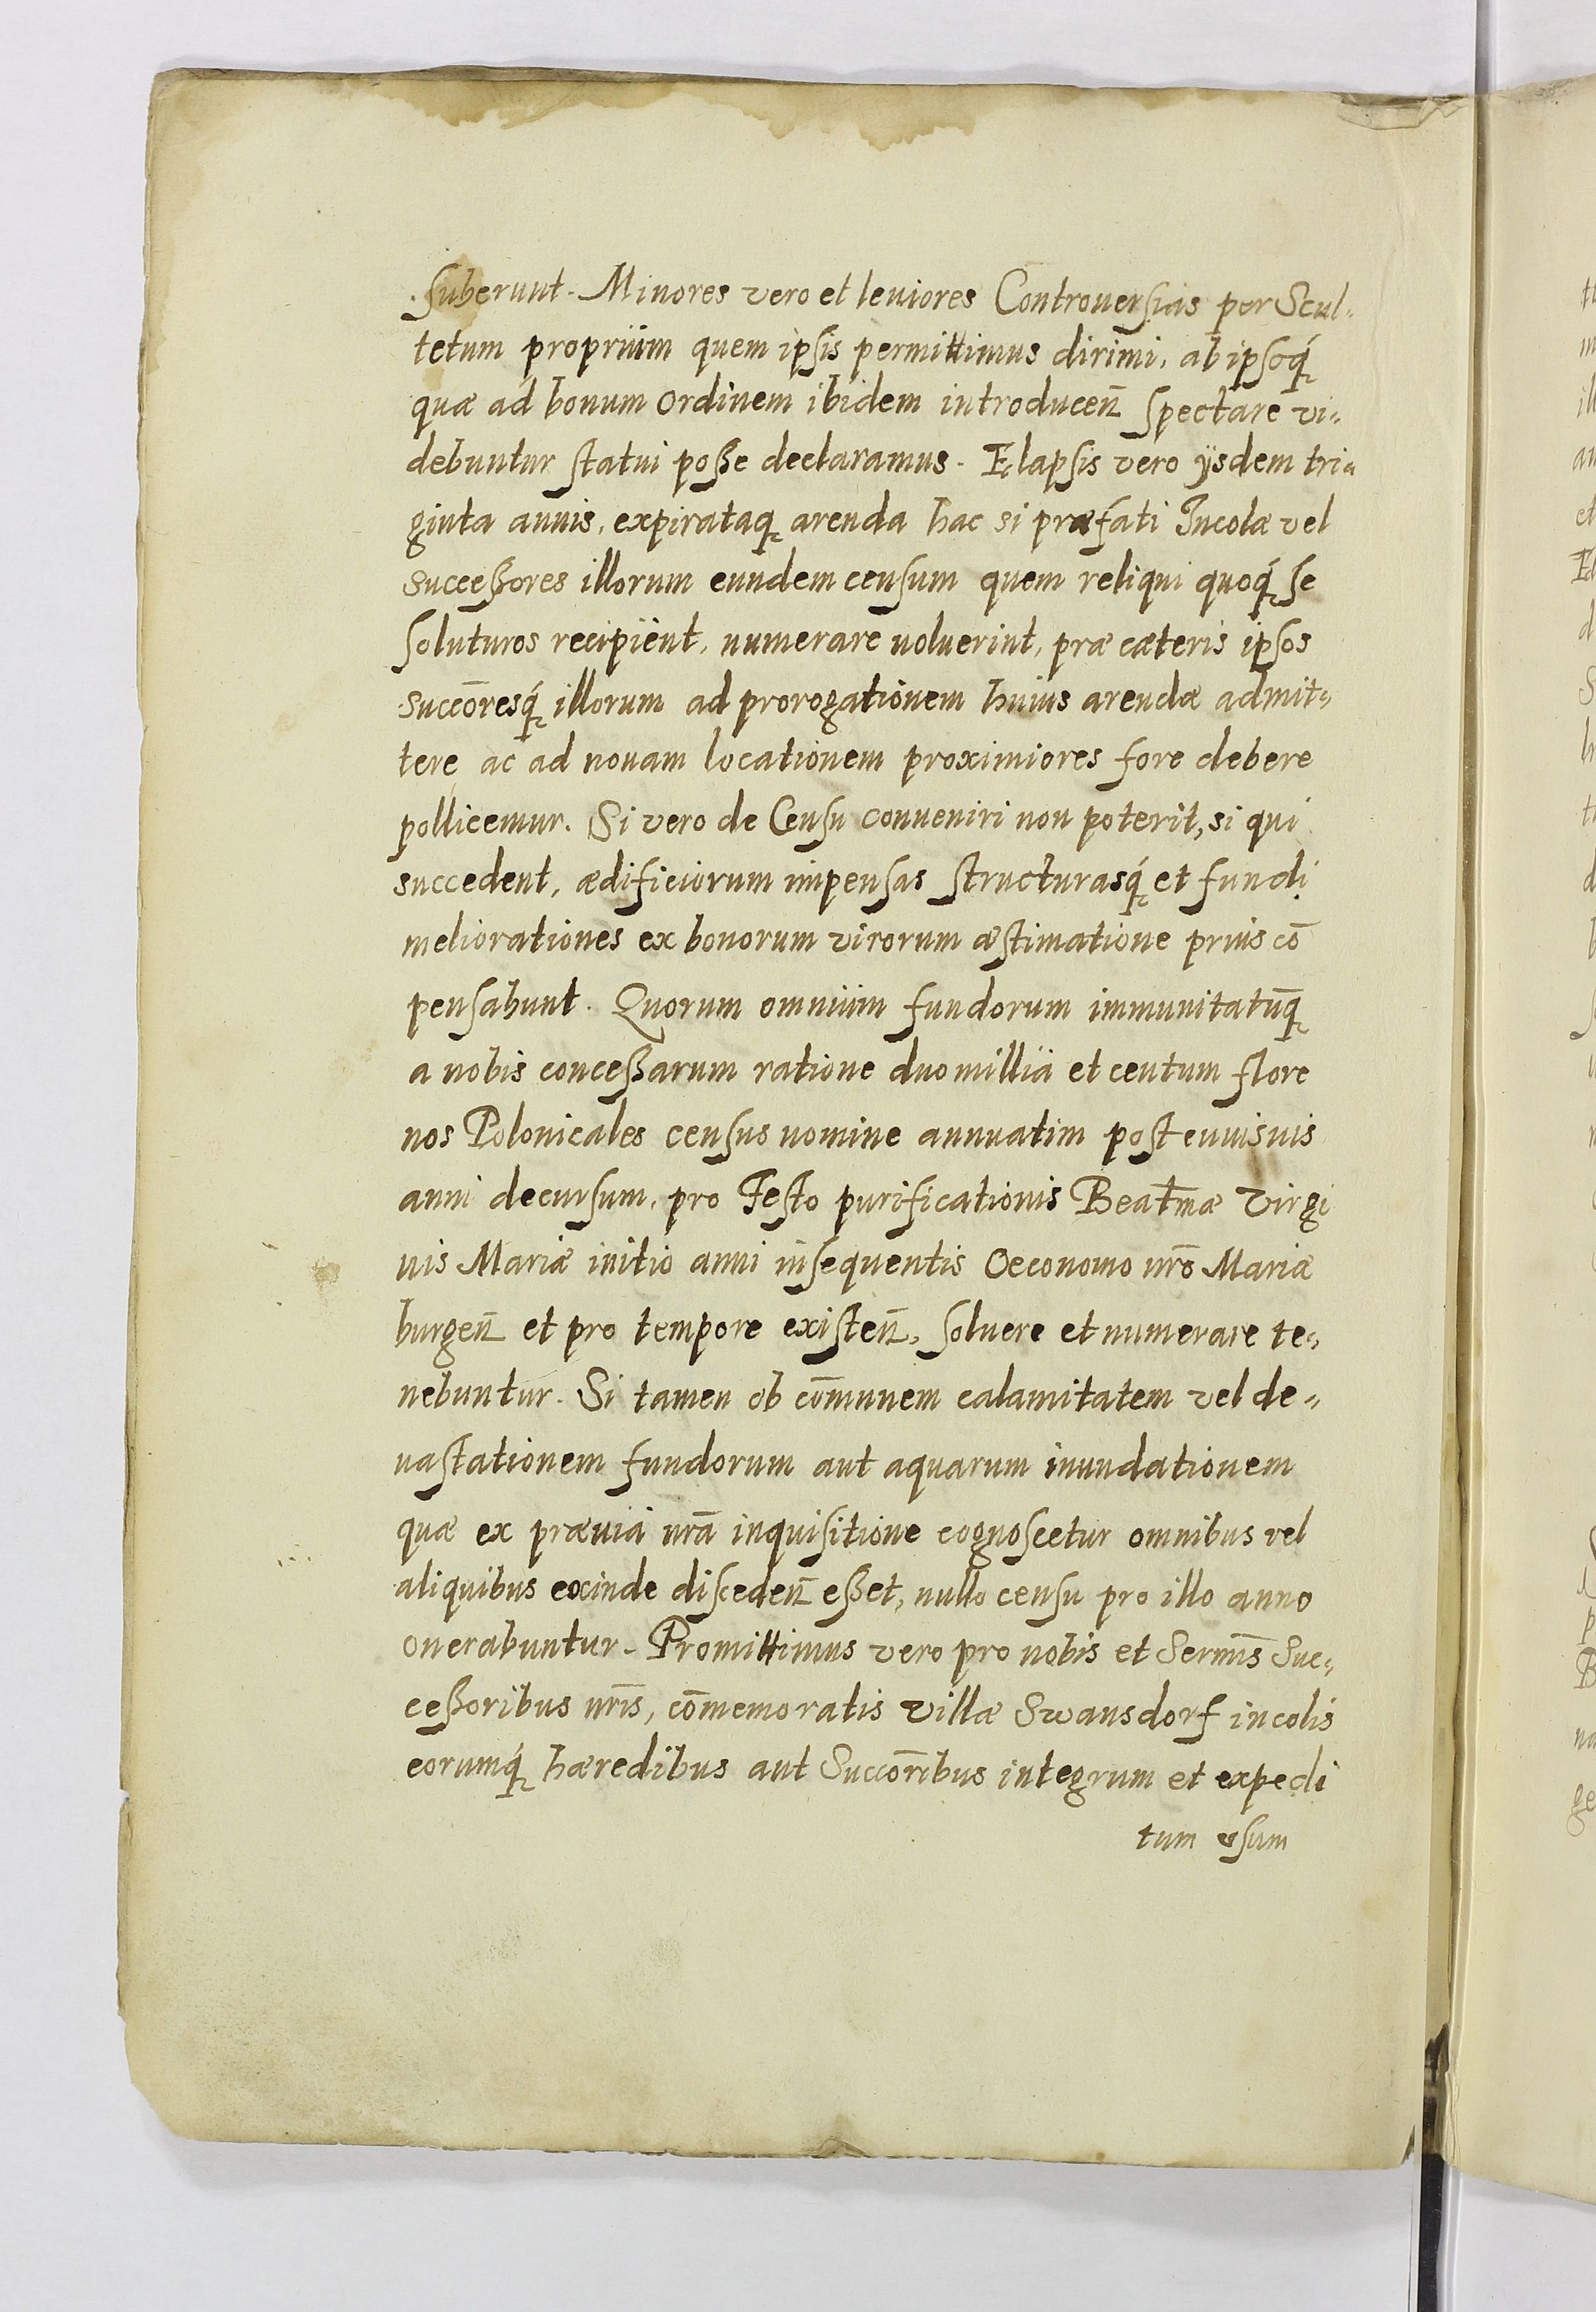 suberunt. Minores vero et leuiores Controuersias per Scul-
tetum proprium quem ipsis permittimus dirimi, ab ipsoq́;
quæ ad bonum Ordinem ibidem introducen̄ spectare vi-
debuntur statui posse declaramus. Elapsis vero ijsdem tri-
ginta annis, expirataq; arenda hac si præfati Incolæ vel
successores illorum eundem censum quem reliqui quoq́; se
soluturos recipient, numerare voluerint, præ cæteris ipsos
succōresq́; illorum ad prorogationem huius arendæ admit-
tere ac ad nouam locationem proximiores fore debere
pollicemur. Si vero de Censu conueniri non poterit, si qui
succedent, ædificiorum impensas structurasq́; et fundi
meliorationes ex bonorum virorum æstimatione prius cō
pensabunt. Quorum omnium fundorum immunitatūq;
a nobis concessarum ratione duo millia et centum flore
nos Polonicales census nomine annuatim post euuisuis
anni decursum, pro Festo purificationis Beatm̄æ Virgi
nis Mariæ initio anni insequentis Oeconomo nrō Mariæ
burgen̄ et pro tempore existen̄, soluere et numerare te-
nebuntur. Si tamen ob cōmunem calamitatem vel de-
uastationem fundorum aut aquarum inundationem
quæ ex præuia nrā inquisitione cognoscetur omnibus vel
aliquibus exinde disceden̄ esset, nullo censu pro illo anno
onerabuntur. Promittimus vero pro nobis et Serm̄is Suc-
cessoribus nrīs, cōmemoratis Villæ Swansdorf incolis
eorumq́; hæredibus aut Succōribus integrum et expedi
tum vsum